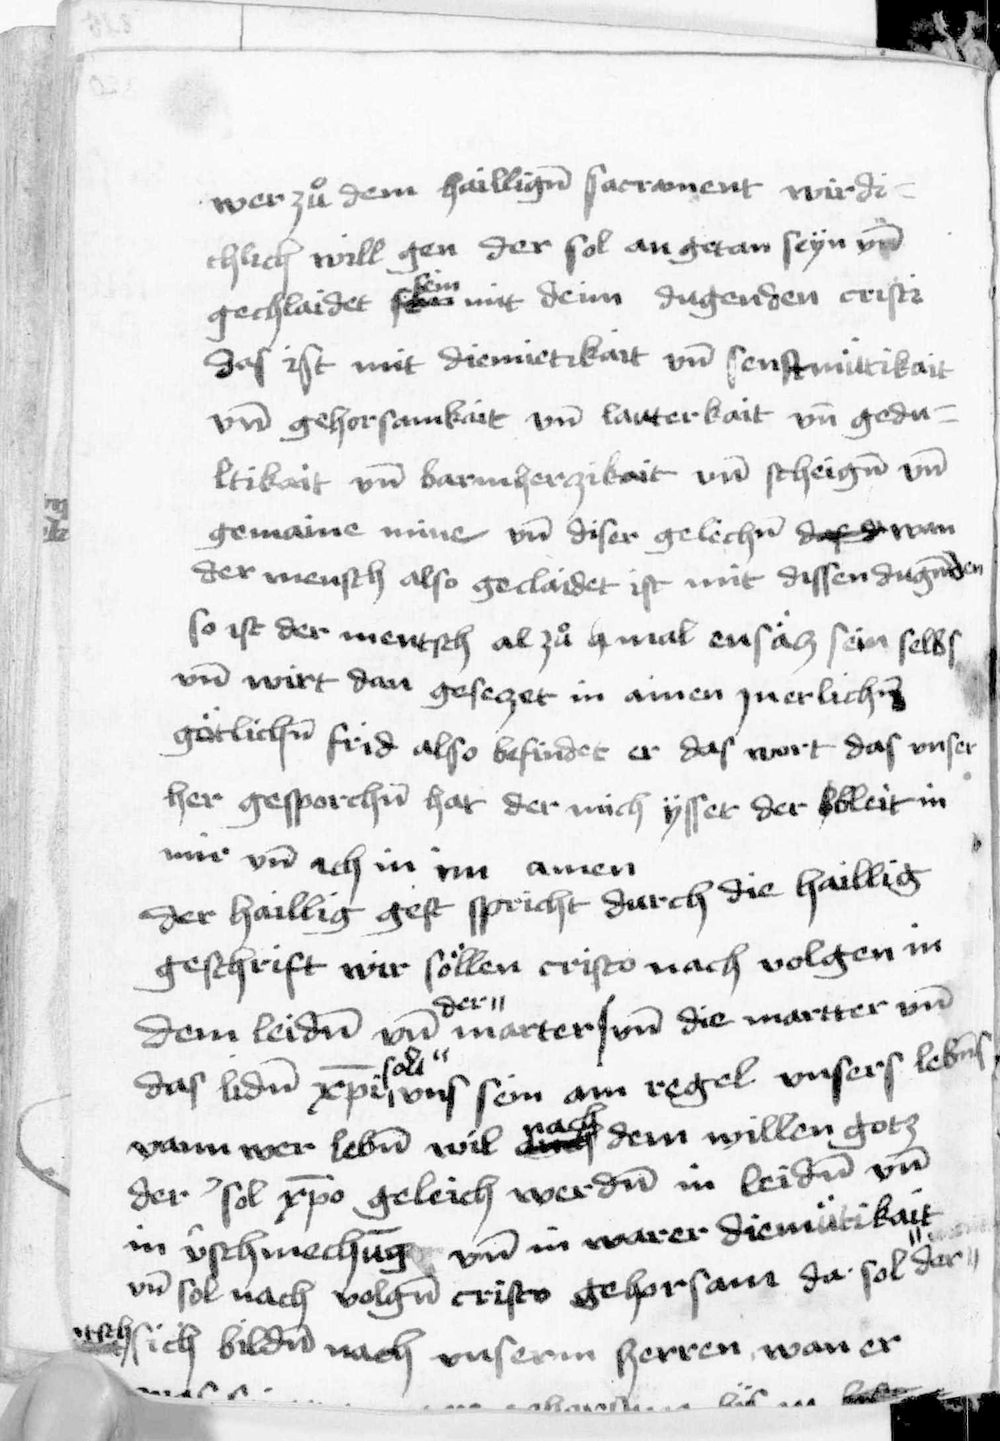 wer zů dem hailligñ sacrament wirdi=
chlich will gen der sol an getan seÿn vñ
gechlaidet sein mit deim dugenden cristi
das ist mit diemietikait vñ senftmütikait
vñ gehorsamkait vñ lauterkait vñ gedu=
ltikait vñ barmherzikait vñ scheigñ vñ
gemaine mine vñ diser gelichñ wan
der mensch also geclaidet ist mit dissen dugñden
so ist der mentsch al zů mal ensäcz sein selbs
vñ wirt dan geseczet in ainen jnerlichñ
götlichñ frid also befindet er das wort das vnser
her gesporchñ hat der mich ÿsset der bleit in
mir vñ ich in im amen
der haillig gest spricht durch die haillig
geschrift wir söllen cristo nach volgen in
dem leidñ vñ der marter vñ die martter vñ
das lidñ xp̄i soll vns sein am regel vnsers lebñs
vann wer lebñ wil nach dem willen gotz
der sol xp̄o geleich werdñ in leidñ vñ
in v̂schmechūg vñ in warer diemütikait
vñ sol nach volgñ cristo gehorsam da sol der
sich bildñ nach vnserm herren wan er